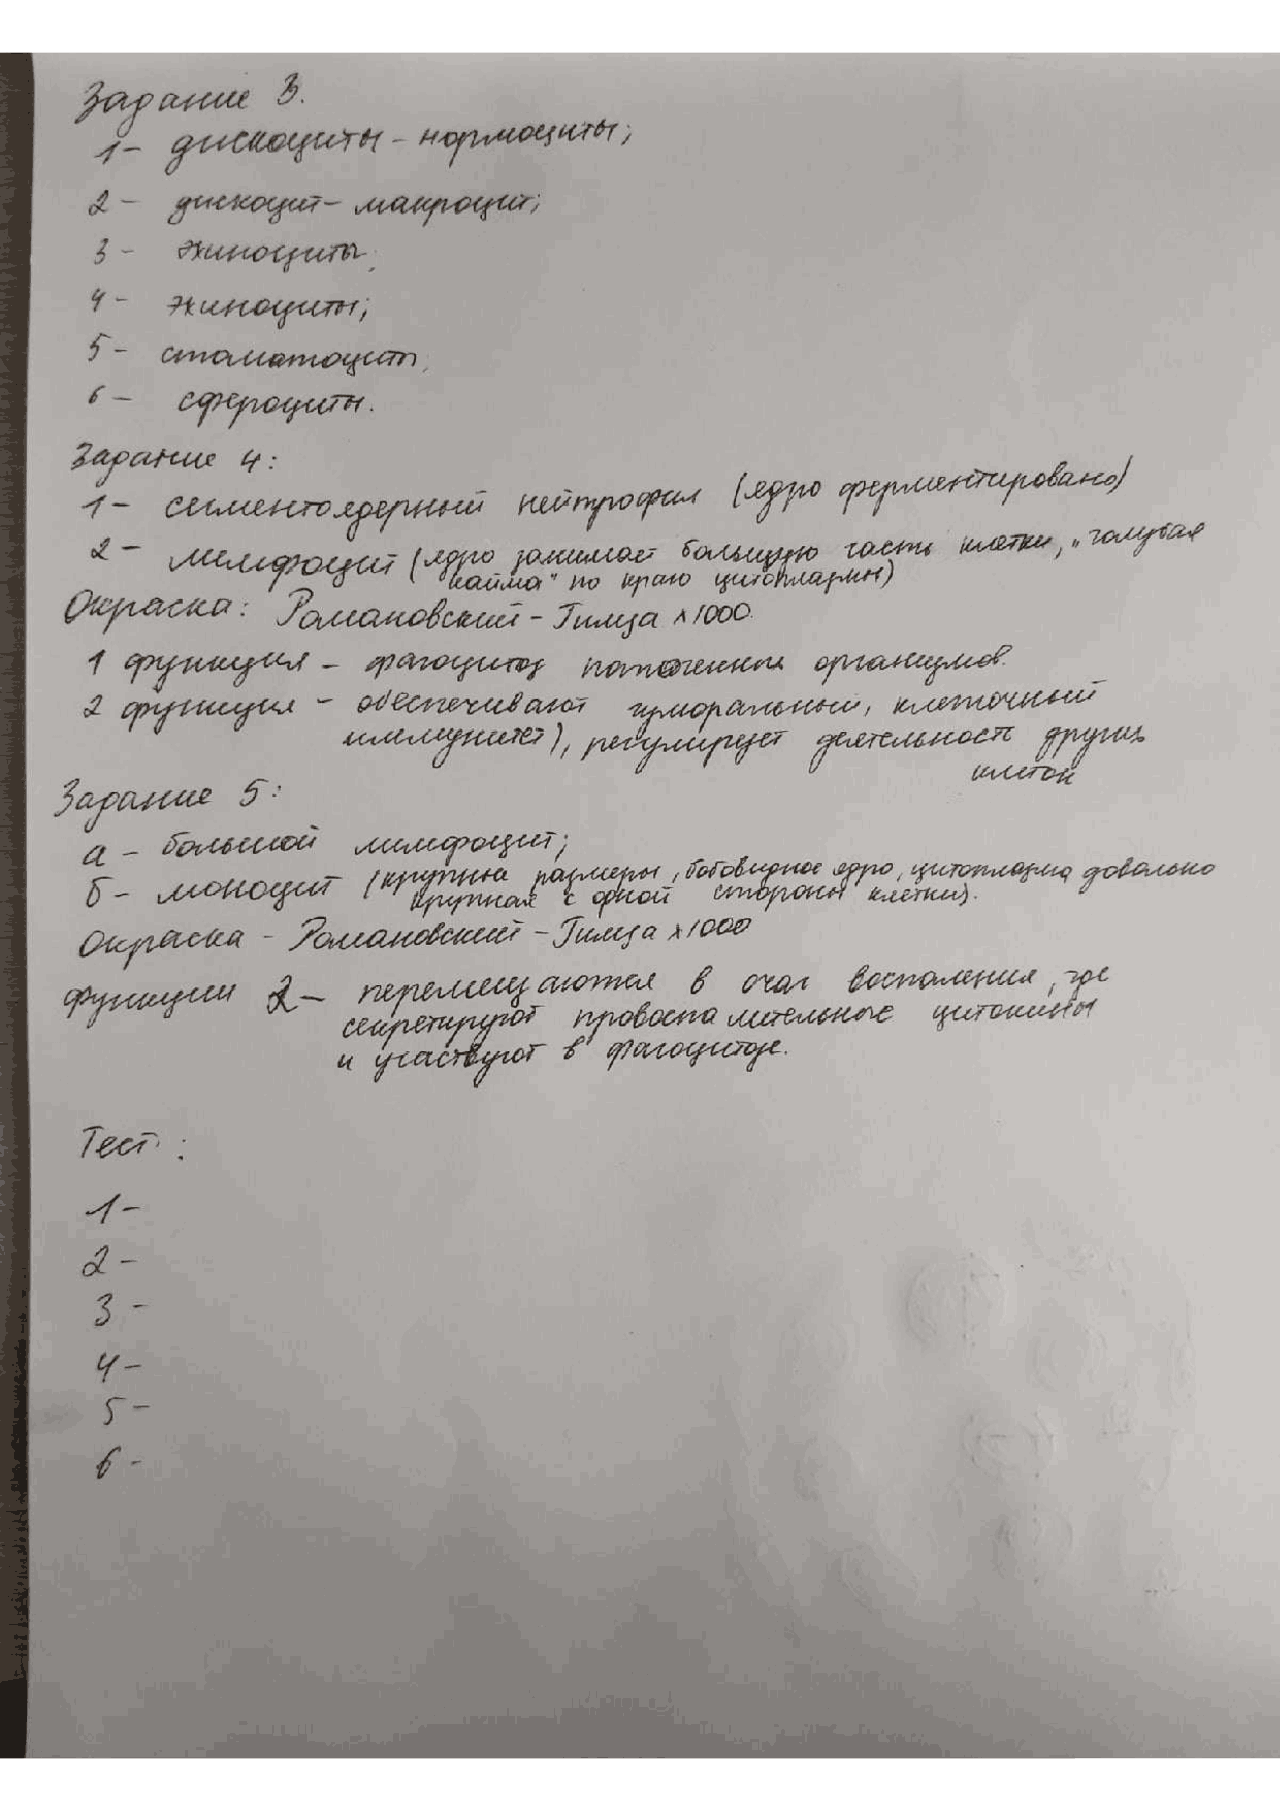 Задание 3.
1- дискоциты - нормоциты;
2 - дискоцит - макроцит;
3 - эхиноциты;
4 - эхиноциты;
5 - стоматоциты.
6 - сфероциты.
Задание 4:
1- сегментоядерный нейтрофил (ядро ферментировано)
2 - лимфоцит (ядро занимает большую часть клетки, "голубая
кайма" по краю цитоплазмы)
Окраска: Романовский - Гимза х1000.
1 функция - фагоцитоз организмов.
2 функция - обеспечивают гуморальный, клеточный
иммунитет), регулирует деятельность других
клеток
Задание 5:
а - большой лимфоцит;
б - моноцит (крупные размеры, бобовидное ядро, цитоплазма довольно
крупная с одной стороны клетки).
Окраска - Романовский - Гимза х1000
функции 2 - перемещаются в очаг воспаления, где
секретируют провоспалительные цитокины
и участвуют в фагоцитозе.
Тест:
1-
2 -
3 -
4 -
5 -
6 -